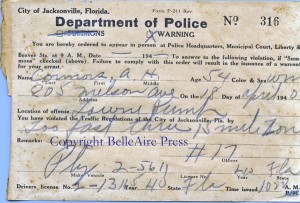 City of Jacksonville, Florida. Form P-211 Rev.
Department of Police Nº 316
SUMMONS X WARNING
You are hereby ordered to appear in person at Police Headquarters, Municipal Court, Liberty &
Beaver Sts. at 9 A. M., Date to answer to the following violation, if "Summons"
checked above). Failure to comply with this order will result in the issue of a warrant
Connors, A. H. Age 54 Color & Sex
Last First Middle
805 Nelson ave 18 day of April 194
Location of offense
You have violated the Traffic Regulations of the City of Jacksonville, Fla. by
Too fast thru 15 mile zone
Copyright BelleAire Press
#17
Remarks Officer
Ply 2-5611 40 Fla
Make Vehicle License No. Year State
Drivers license No. Year 40 State Fla Time A. M.